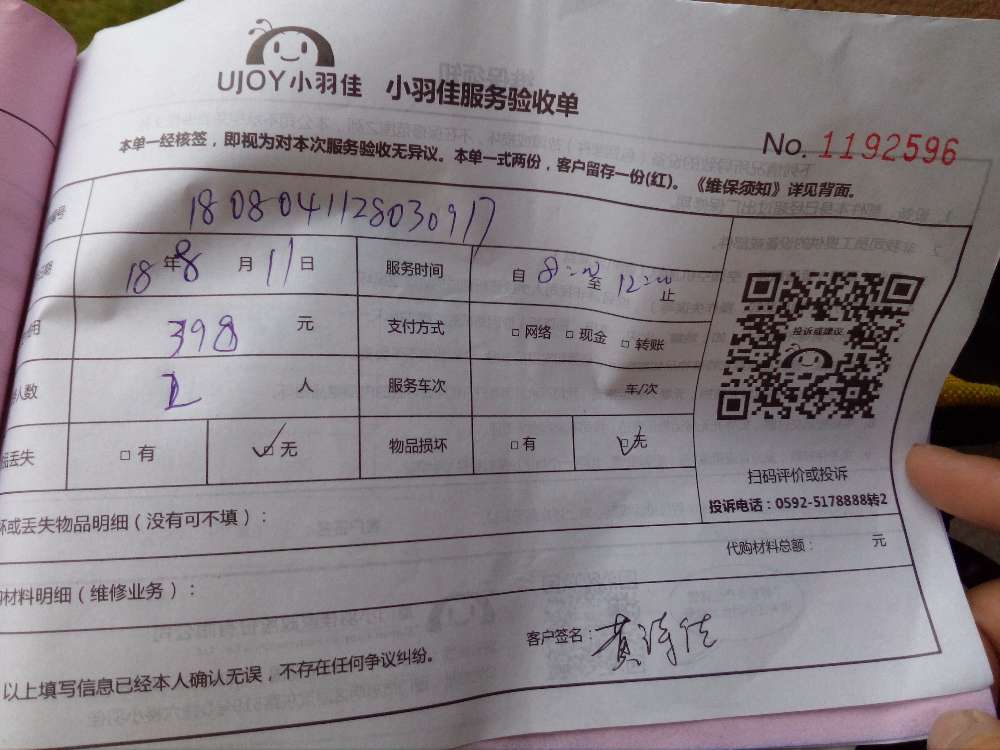 UJOY小羽佳 小羽佳服务验收单
No. 1192596
本单一经核签，即视为对本次服务验收无异议。本单一式两份，客户留存一份(红)。《维保须知》详见背面。
号 1808041128030917
18年8月11日 服务时间 自8:00至12:00止
398元 支付方式 □网络 □现金 □转账
人数 人 服务车次 车/次
丢失 □有 □无 物品损坏 □有 □无
投诉或建议
扫码评价或投诉
投诉电话：0592-5178888转2
或丢失物品明细（没有可不填）：
代购材料总额： 元
材料明细（维修业务）：
客户签名：
以上填写信息已经本人确认无误，不存在任何争议纠纷。